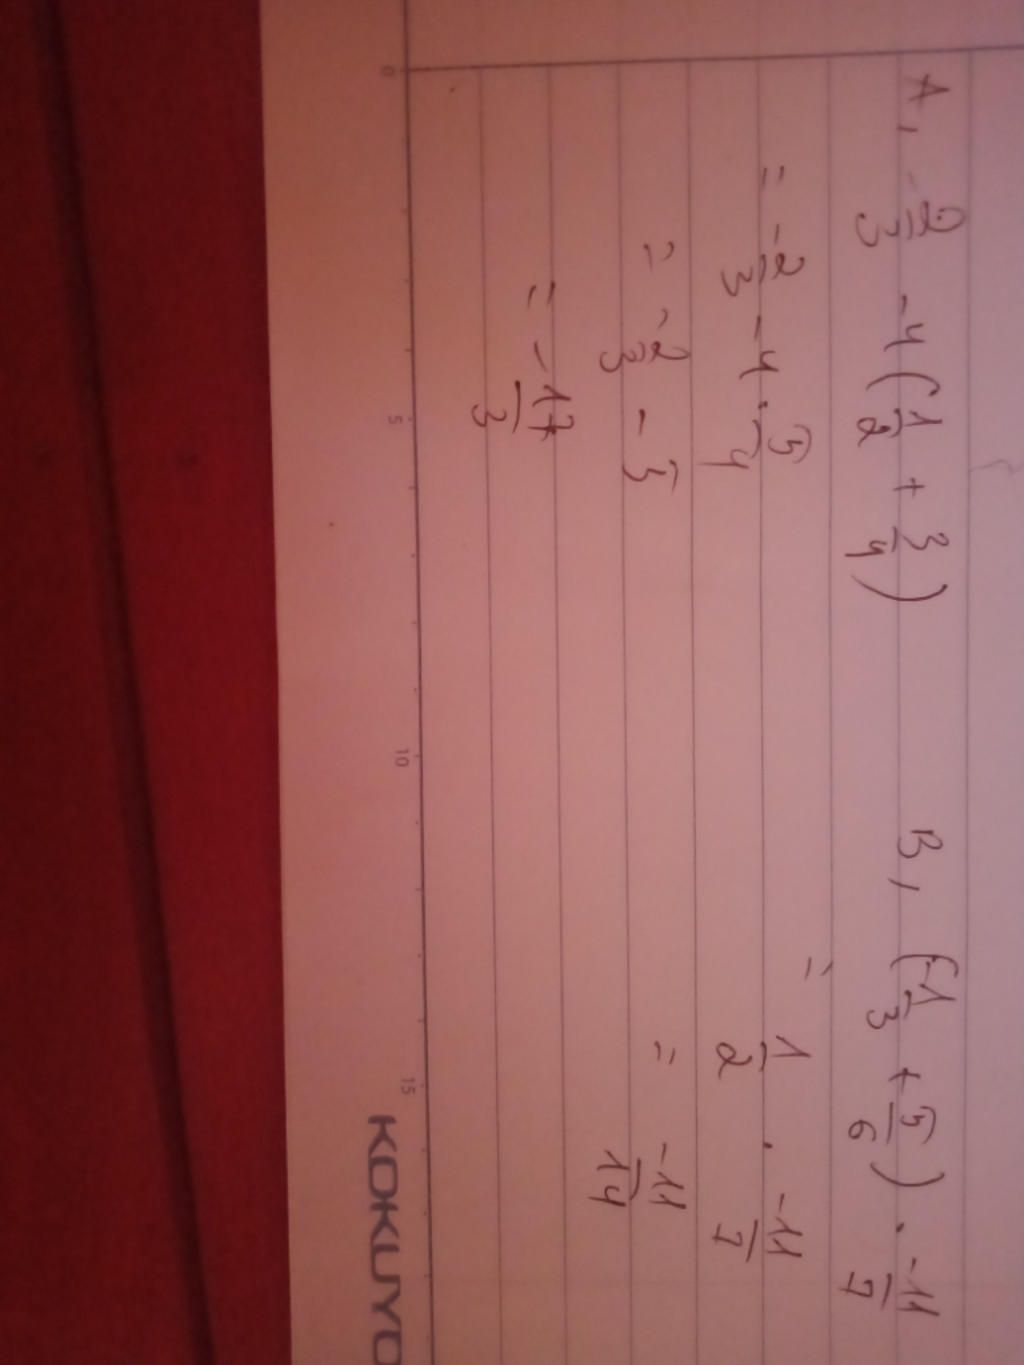 A, -2/3 - 4 (1/2 + 3/4)
= -2/3 - 4 . 5/4
= -2/3 - 5
= -17/3
B, (-1/3 + 5/6) . -11/7
= 1/2 . -11/7
= -11/14
0 5 10 15
KOKUYO